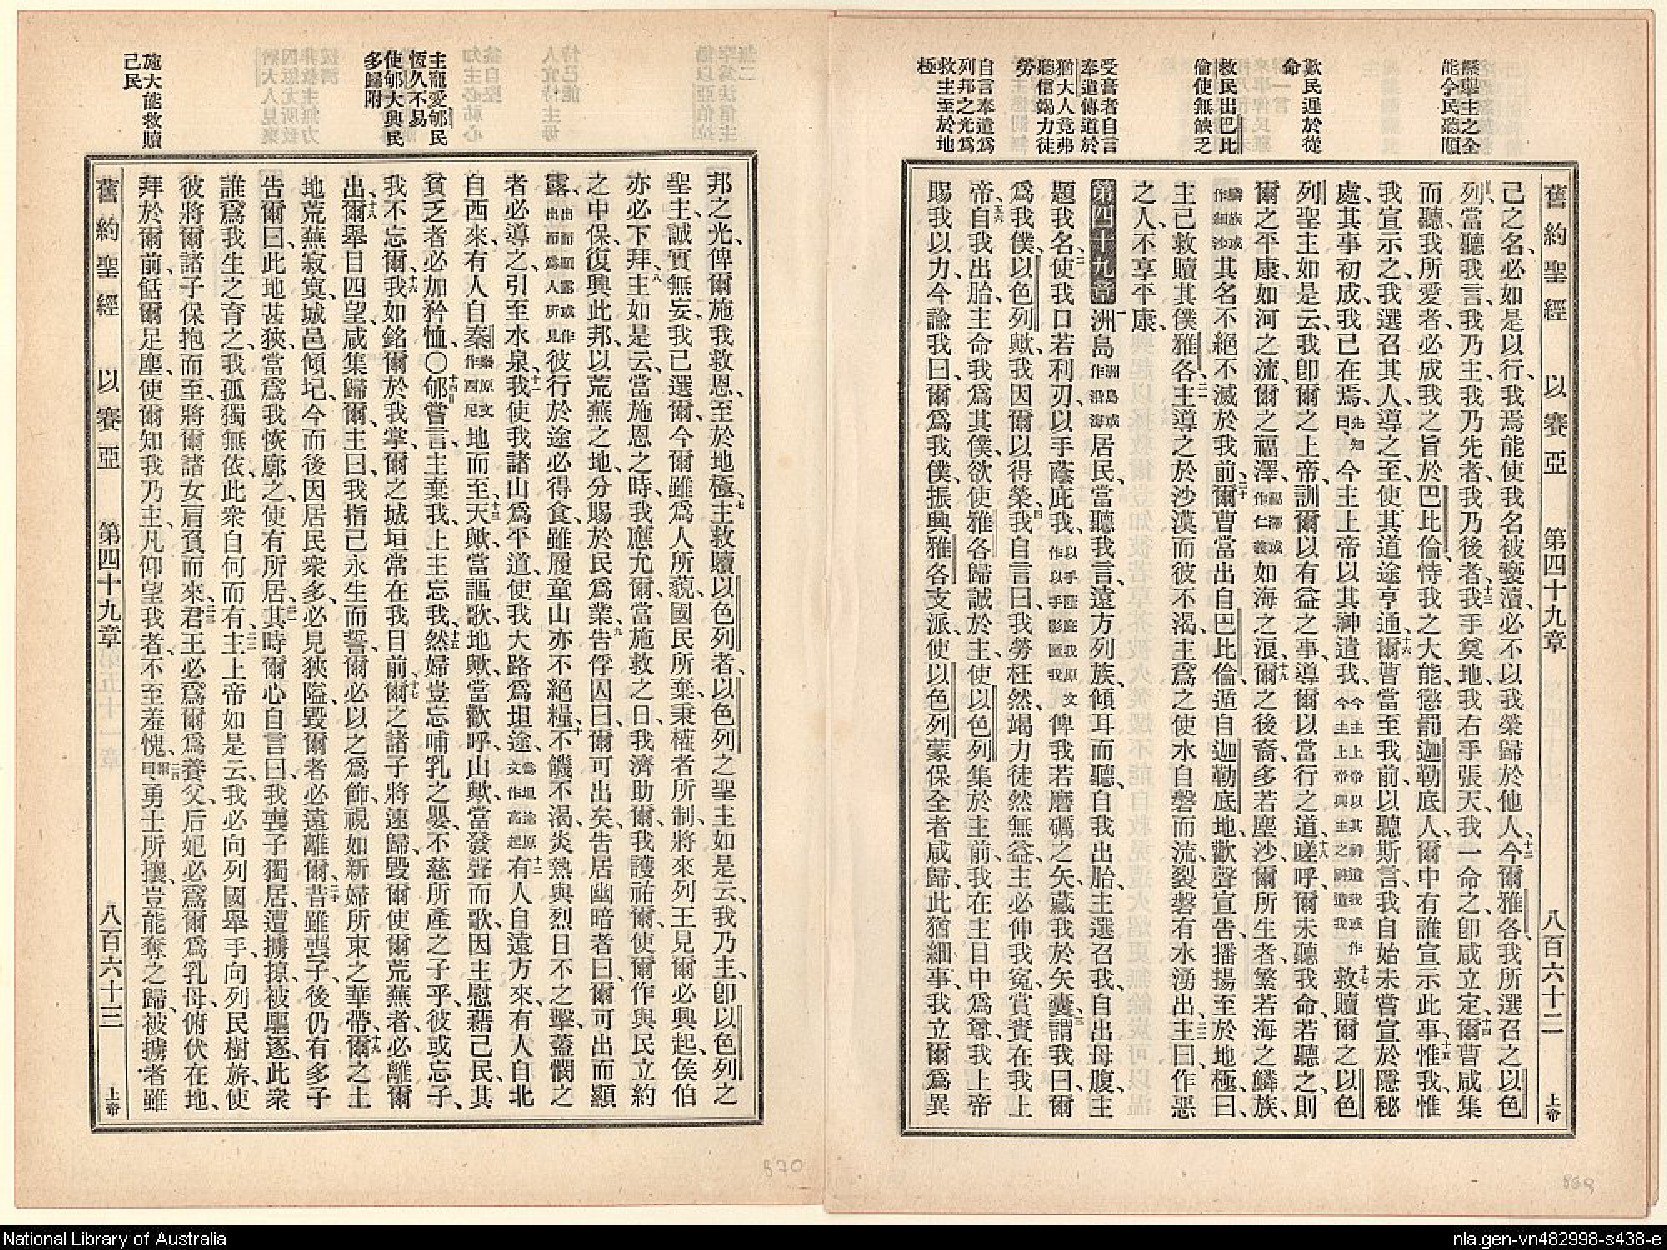 懸擧主之全
能令民聽順
歎民遲於從
命
救民出巴比
倫使無缺乏
受膏者自言
奉遣傳道於
猶大人竟弗
聽信竭力徒
勞
自言奉遣爲
列邦之光爲
救主至於地
極
舊約聖經 以賽亞 第四十九章 八百六十二 上帝
己之名、必如是以行、我焉能使我名被褻瀆、必不以我榮歸於他人、十二今爾雅各、我所選召之以色
列、當聽我言、我乃主、我乃先者、我乃後者、十三我手奠地、我右手張天、我一命之、卽咸立定、十四爾曹咸集
而聽、我所愛者、必成我之旨於巴比倫、恃我之大能懲罰迦勒底人、爾中有誰宣示此事、十五惟我、惟
我宣示之、我選召其人、導之至、使其道途亨通、十六爾曹當至我前、以聽斯言、我自始未嘗宣於隱秘
處、其事初成、我已在焉、先知曰今主上帝以其神遣我、今主上帝以其神遣我或作今主上帝與主之神遣我十七救贖爾之以色
列聖主如是云、我卽爾之上帝、訓爾以有益之事、導爾以當行之道、十八嗟呼、爾未聽我命、若聽之、則
爾之平康、如河之流、爾之福澤、福澤或作仁義如海之浪、十九爾之後裔、多若塵沙、爾所生者、繁若海之鱗族、
鱗族或作細沙其名不絕不滅於我前、二十爾曹當出自巴比倫、遁自迦勒底地、歡聲宣告播揚、至於地極、曰、
主已救贖其僕雅各、二一主導之於沙漠、而彼不渴、主爲之使水自磐而流、裂磐有水湧出、二二主曰、作惡
之人、不享平康、
第四十九章 一洲島洲島或作沿海居民、當聽我言、遠方列族、傾耳而聽、自我出胎、主選召我、自出母腹、主
題我名、二使我口若利刃、以手蔭庇我、以手蔭庇我原文作以手影匿我俾我若磨礪之矢、藏我於矢囊、三謂我曰、爾
爲我僕、以色列歟、我因爾以得榮、四我自言曰、我勞枉然、竭力徒然無益、主必伸我寃、賞賚在我上
帝、五自我出胎、主命我爲其僕、欲使雅各歸誠於主、使以色列集於主前、我在主目中爲尊、我上帝
賜我以力、今諭我曰、爾爲我僕、振興雅各支派、使以色列蒙保全者咸歸、此猶細事、我立爾爲異
主寵愛郇民
恆久不易
使郇大興民
多歸附
施大能救贖
己民
邦之光、俾爾施我救恩、至於地極、七主救贖以色列者、以色列之聖主、如是云、我乃主、卽以色列之
聖主、誠實無妄、我已選爾、今爾雖爲人所藐、國民所棄、秉權者所制、將來列王見爾必興起、侯伯
亦必下拜、八主如是云、當施恩之時、我應允爾、當施救之日、我濟助爾、我護祐爾、使爾作與民立約
之中保、復興此邦、以荒蕪之地、分賜於民爲業、九告俘囚曰、爾可出矣、告居幽暗者曰、爾可出而顯
露、出而顯露或作出而爲人所見彼行於途、必得食、雖履童山、亦不絕糧、十不饑不渴、炎熱與烈日不之擊、蓋憫之
者必導之、引至水泉、十一我使我諸山爲平道、使我大路爲坦途、爲坦途原文作高起十二有人自遠方來、有人自北
自西來、有人自秦秦原文作西尼地而至、十三天歟、當謳歌、地歟、當歡呼、山歟、當發聲而歌、因主慰藉己民、其
貧乏者必加矜恤、〇十四郇嘗言、主棄我、上主忘我、十五然婦豈忘哺乳之嬰、不慈所產之子乎、彼或忘子、
我不忘爾、十六我如銘爾於我掌、爾之城垣常在我目前、十七爾之諸子將速歸、毀爾使爾荒蕪者必離爾
出、十八爾舉目四望、咸集歸爾、主曰、我指己永生而誓、爾必以之爲飾、視如新婦所束之華帶、十九爾之土
地荒蕪寂寞、城邑傾圮、今而後因居民衆多、必見狹隘、毀爾者必遠離爾、二十昔雖喪子、後仍有多子
告爾曰、此地甚狹、當爲我恢廓之、使有所居、二一其時爾心自言曰、我喪子獨居、遭擄掠、被驅逐、此衆
誰爲我生之育之、我孤獨無依、此衆自何而有、二二主上帝如是云、我必向列國舉手、向列民樹旂、使
彼將爾諸子保抱而至、將爾諸女肩負而來、二三君王必爲爾爲養父、后妃必爲爾爲乳母、俯伏在地、
拜於爾前、餂爾足塵、使爾知我乃主、凡仰望我者、不至羞愧、二四爾曰勇士所攘、豈能奪之歸、被擄者雖
舊約聖經 以賽亞 第四十九章 八百六十三 上帝
870
869
National Library of Australia
nla.gen-vn482998-s438-e